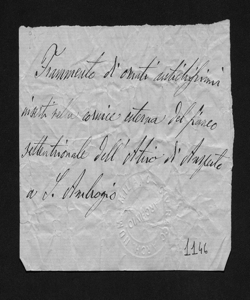 Frammento di ornati antichissimi
inserti nella cornice esterna del fianco
settentrionale dell'Atrio di Ansperto
a S. Ambrogio
1146